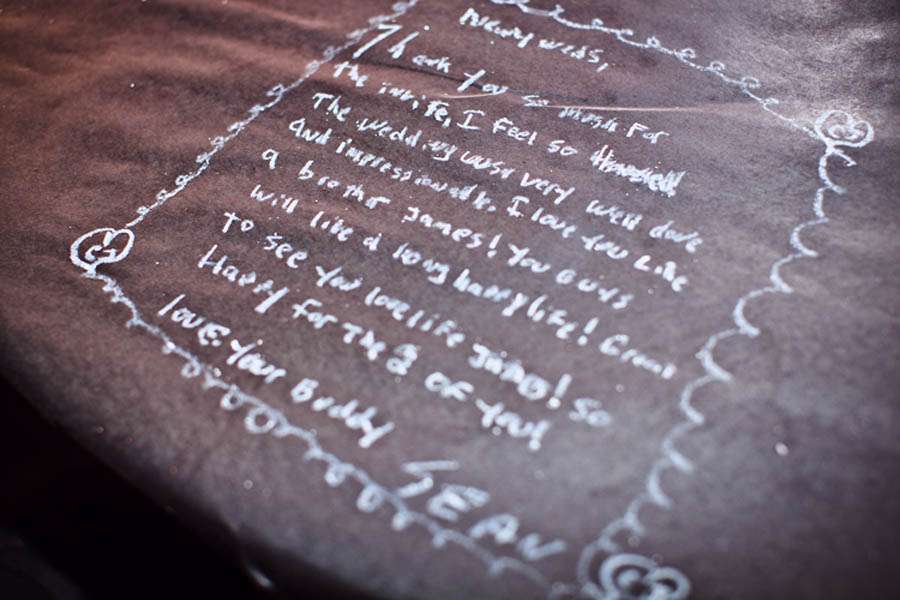 Newly weds,
Thank You so much For
the invite, I Feel so
The wedding was very well done
and impressionable. I love you Like
a brother James! You Guys
will live a long happy life! Great
To see you love life JAMES! So
Happy For The 2 of You!
love Your Buddy
SEAN